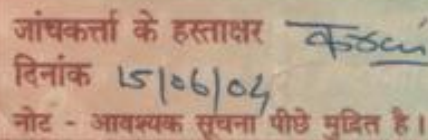 जांचकर्त्ता के हस्ताक्षर
दिनांक 15/06/04
नोट - आवश्यक सूचना पीछे मुद्रित है।